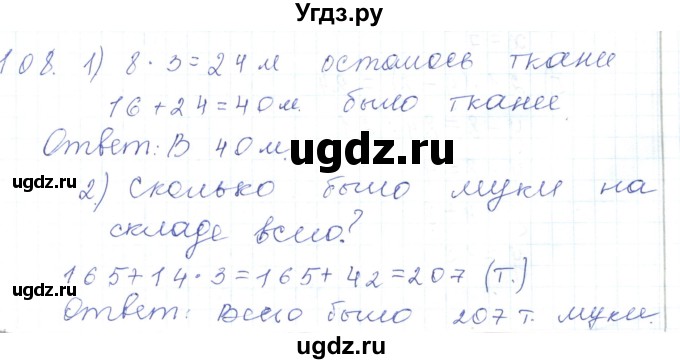 Угдз.ру
108. 1) 8 · 3 = 24 м осталось ткани
16 + 24 = 40 м. было ткани.
Ответ: В 40 м.
ugdz.ru
ugdz.ru ugdz.ru
2) Сколько было муки на
складе всего?
165 + 14 · 3 = 165 + 42 = 207 (т.)
Ответ: Всего было 207 т. муки.
ugdz.ru ugdz.ru